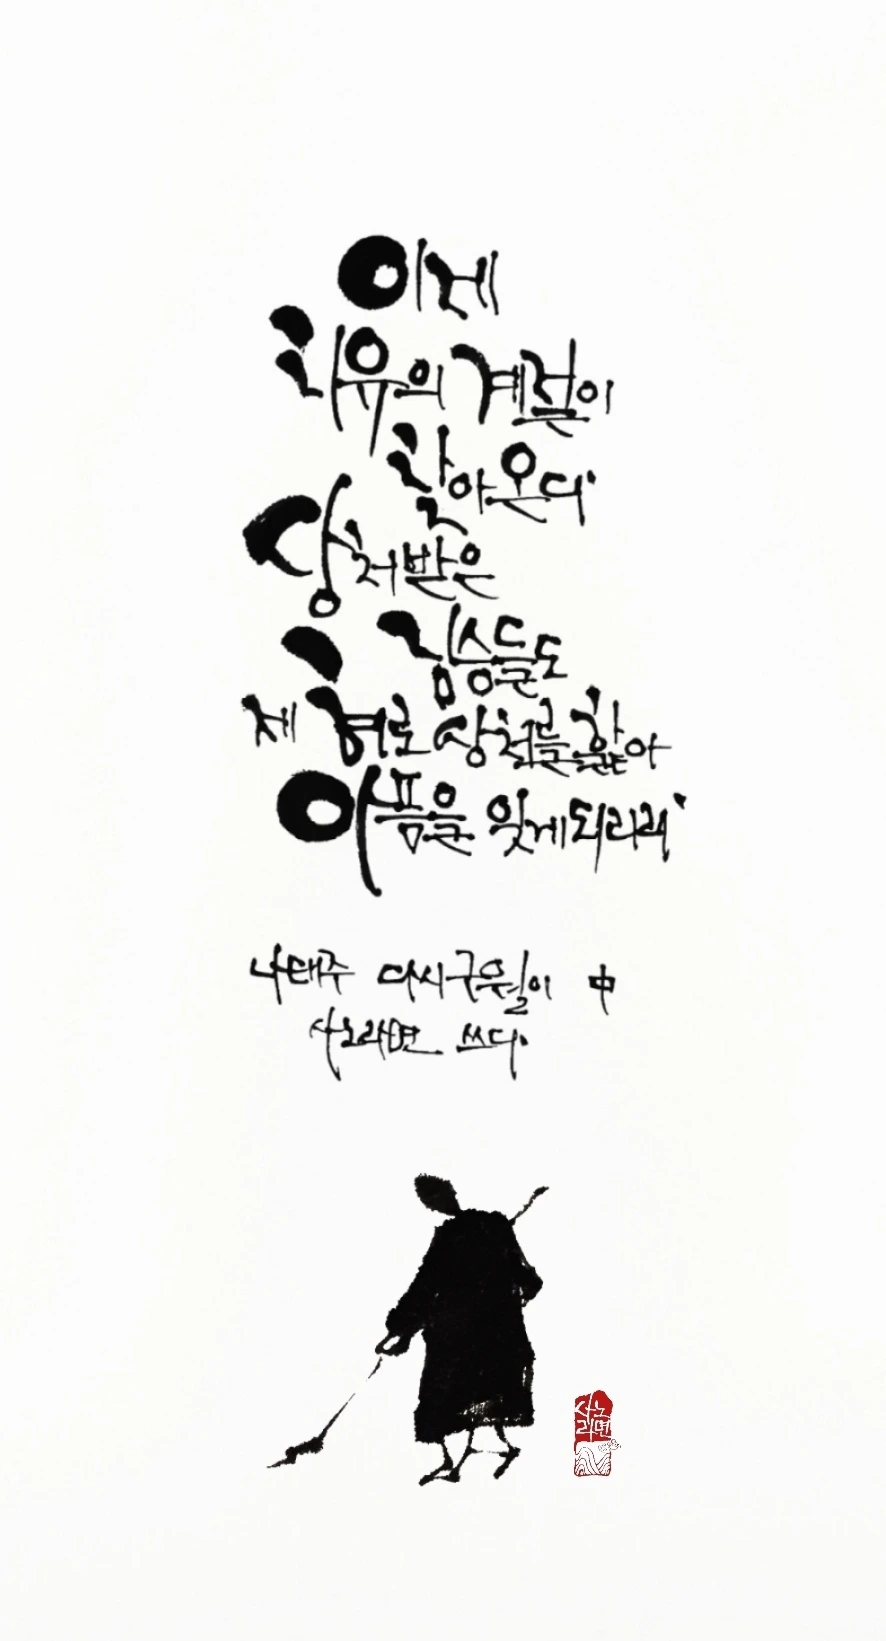 이제
치유의 계절이
찾아온다
상처받은
짐승들도
제 혀로 상처를 핥아
아픔을 잊게 되리라
나태주 다시 구월이 中
사노라면 쓰다
사노
라면